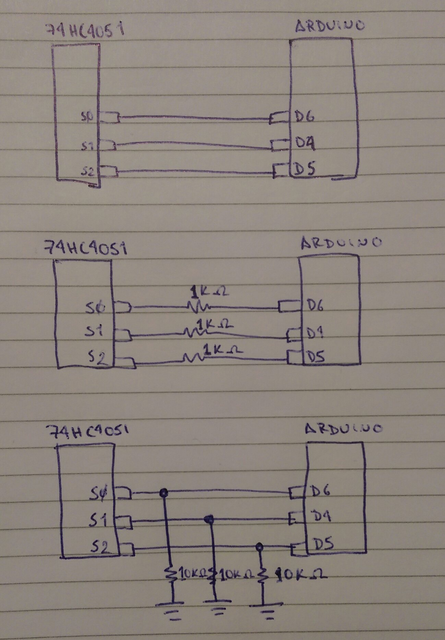 74HC4051 ARDUINO
S0 D6
S1 D4
S2 D5
74HC4051 ARDUINO
1KΩ
S0 D6
1KΩ
S1 D4
1KΩ
S2 D5
74HC4051 ARDUINO
S0 D6
S1 D4
S2 D5
10KΩ 10KΩ 10KΩ